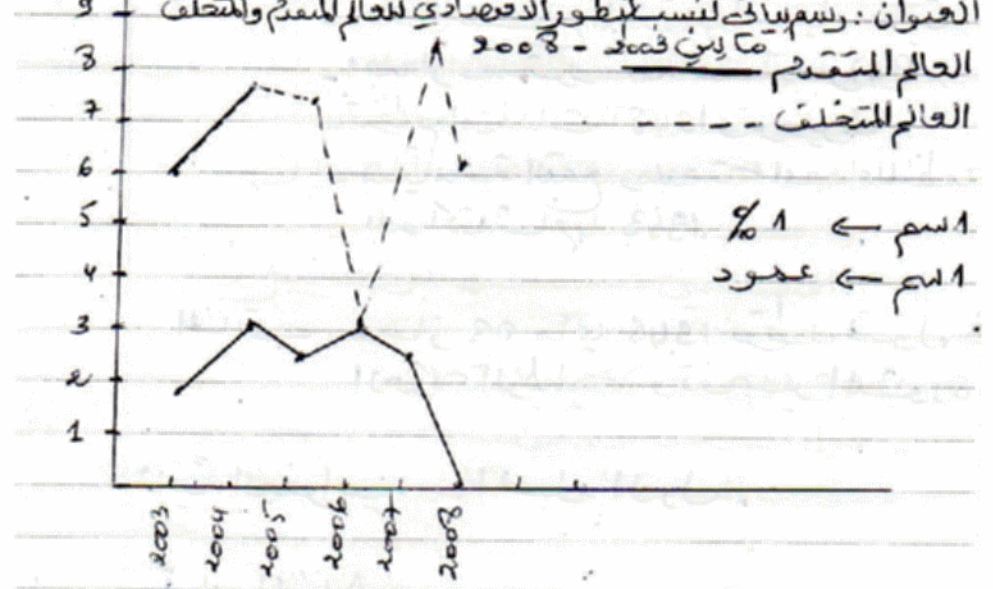 العنوان : رسم بياني لنسب تطور الاقتصادي للعالم المتقدم والمتخلف
ما بين 2003 - 2008
العالم المتقدم
العالم المتخلف - - - -
1 سم ← 1 %
1 سم ← عمود
9
8
7
6
5
4
3
2
1
2003
2004
2005
2006
2007
2008